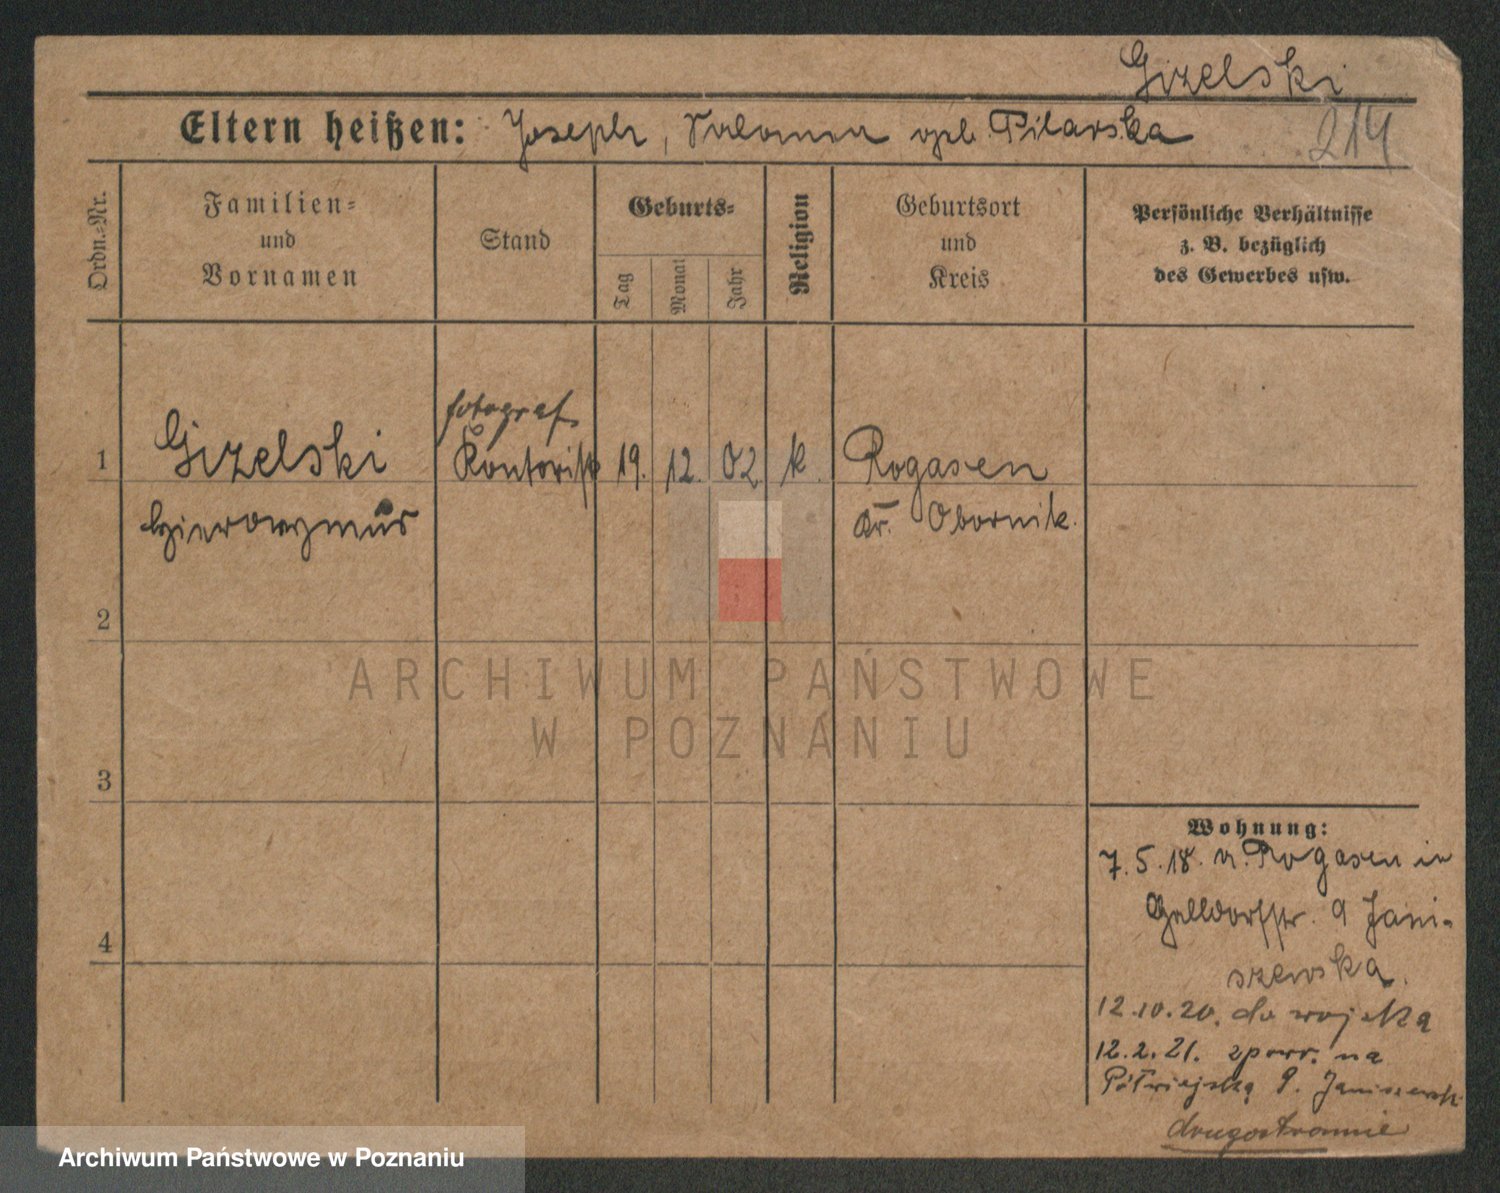 Gizelski
Eltern heißen: Joseph, Salomea geb. Pilarska
214
Ordn.-Nr.
Familien-
und
Vornamen
Stand
Geburts-
Tag
Monat
Jahr
Religion
Geburtsort
und
Kreis
Persönliche Verhältnisse
z. B. bezüglich
des Gewerbes usw.
fotograf
1 Gizelski Kontorist 19. 12. 02 k. Rogasen
Hieronymus Kr. Obornik.
2
ARCHIWUM PAŃSTWOWE
W POZNANIU
3
Wohnung:
7.5.18. v. Rogasen in
Halldorfstr. 9 Jani-
4
szewska.
12.10.20. do wojska
12.2.21. z powr. na
Półwiejską 9. Janiszewsk
drugostronnie
Archiwum Państwowe w Poznaniu